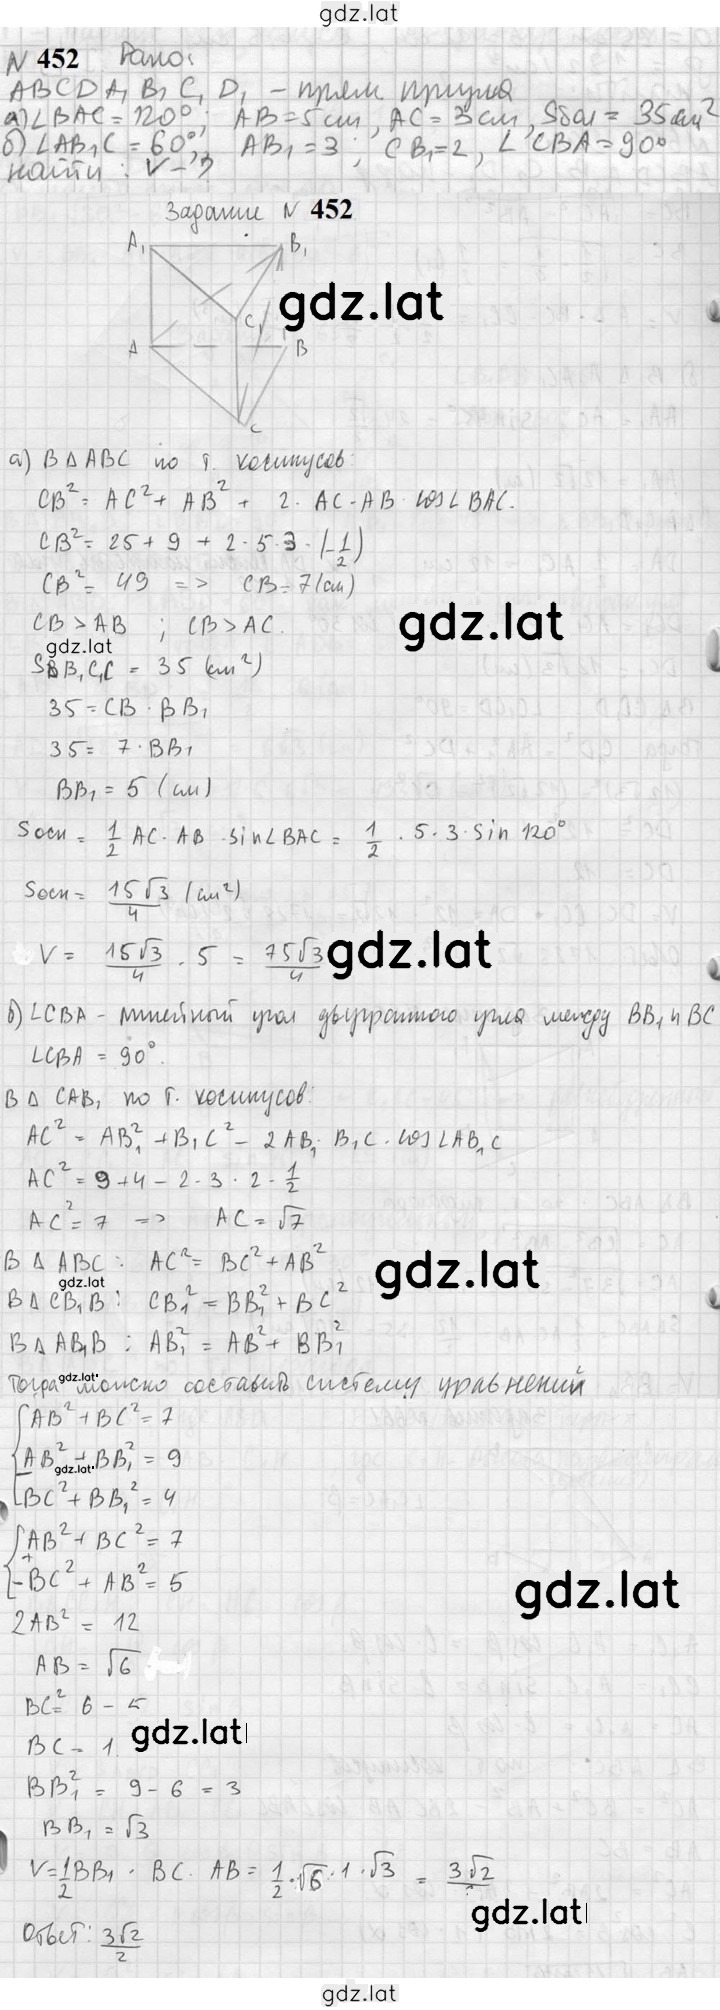 gdz.lat
N 452 Дано:
ABCDA₁B₁C₁D₁ – прям призма
а) ∠BAC = 120°; AB = 5 cm, AC = 3 см, Sбол = 35 см²
б) ∠AB₁C = 60°, AB₁ = 3; CB₁ = 2, ∠CBA = 90°
найти: V – ?
Задание N 452
A₁ B₁
gdz.lat
C₁
A B
C
а) В Δ ABC по т. косинусов:
CB² = AC² + AB² + 2 · AC · AB · cos∠BAC.
CB² = 25 + 9 + 2 · 5 · 3 · (-1/2)
CB² = 49 => CB = 7 (см)
CB > AB ; CB > AC.
gdz.lat
gdz.lat
SBB₁C₁C = 35 (см²)
35 = CB · BB₁
35 = 7 · BB₁
BB₁ = 5 (см)
Sосн = 1/2 AC · AB · sin∠BAC = 1/2 · 5 · 3 · sin 120°
Sосн = 15√3/4 (см²)
V = 15√3/4 · 5 = 75√3/4
gdz.lat
б) ∠CBA – линейный угол двугранного угла между BB₁ и BC
∠CBA = 90°.
В Δ CAB₁ по т. косинусов:
AC² = AB₁² + B₁C² – 2AB₁ · B₁C · cos∠AB₁C
AC² = 9 + 4 – 2 · 3 · 2 · 1/2
AC² = 7 => AC = √7
В Δ ABC : AC² = BC² + AB²
gdz.lat
gdz.lat
В Δ CB₁B : CB₁² = BB₁² + BC²
В Δ AB₁B : AB₁² = AB² + BB₁²
Тогда можно составить систему уравнений
gdz.lat
AB² + BC² = 7
AB² + BB₁² = 9
gdz.lat
BC² + BB₁² = 4
AB² + BC² = 7
+
-BC² + AB² = 5
gdz.lat
2AB² = 12
AB = √6
BC² = 6 – 5
BC = 1.
gdz.lat
BB₁² = 9 – 6 = 3
BB₁ = √3
V = 1/2 BB₁ · BC · AB = 1/2 · √6 · 1 · √3 = 3√2/2
gdz.lat
Ответ: 3√2/2
gdz.lat